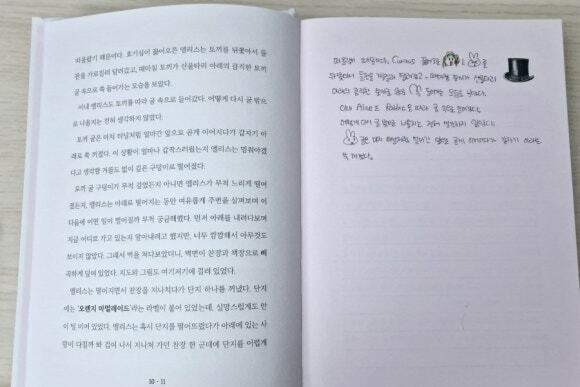 떠올랐기 때문이다. 호기심이 끓어오른 앨리스는 토끼를 뒤쫓아서 들
판을 가로질러 달려갔고, 때마침 토끼가 산울타리 아래의 큼직한 토끼
굴 속으로 쏙 들어가는 모습을 보았다.
이내 앨리스도 토끼를 따라 굴 속으로 들어갔다. 어떻게 다시 굴 밖으
로 나올지는 전혀 생각하지 않았다.
토끼 굴은 마치 터널처럼 얼마간 앞으로 곧게 이어지다가 갑자기 아
래로 쑥 꺼졌다. 이 상황이 얼마나 갑작스러웠는지 앨리스는 멈춰야겠
다고 생각할 겨를도 없이 깊은 구덩이로 떨어졌다.
토끼 굴 구덩이가 무척 깊었든지 아니면 앨리스가 무척 느리게 떨어
졌든지, 앨리스는 아래로 떨어지는 동안 여유롭게 주변을 살펴보며 이
다음에 어떤 일이 벌어질까 무척 궁금해했다. 먼저 아래를 내려다보며
지금 어디로 가고 있는지 알아내려고 했지만, 너무 깜깜해서 아무것도
보이지 않았다. 그래서 벽을 쳐다보았더니, 벽면이 찬장과 책장으로 빼
곡하게 덮여 있었다. 지도와 그림도 여기저기에 걸려 있었다.
앨리스는 떨어지면서 찬장을 지나쳤다가 단지 하나를 꺼냈다. 단지
에는 '오렌지 마멀레이드'라는 라벨이 붙어 있었는데, 실망스럽게도 안
이 텅 비어 있었다. 앨리스는 혹시 단지를 떨어뜨렸다가 아래에 있는 사
람이 다칠까 봐 겁이 나서 지나쳐 가던 찬장 한 군데에 단지를 어렵게
10 · 11
떠올랐기 때문이다. Curious 끓어오른
뒤쫓아서 들판을 가로질러 달려갔고, 때마침 토끼가 산울타리
아래의 큼직한 토끼굴 속으로 쏙 들어가는 모습을 보았다.
Alice Rabbit를 따라 굴 속으로 들어갔다.
어떻게 다시 굴 밖으로 나올지는 전혀 생각하지 않았다.
굴은 마치 터널처럼 얼마간 앞으로 곧게 이어지다가 갑자기 아래로
쑥 꺼졌다.